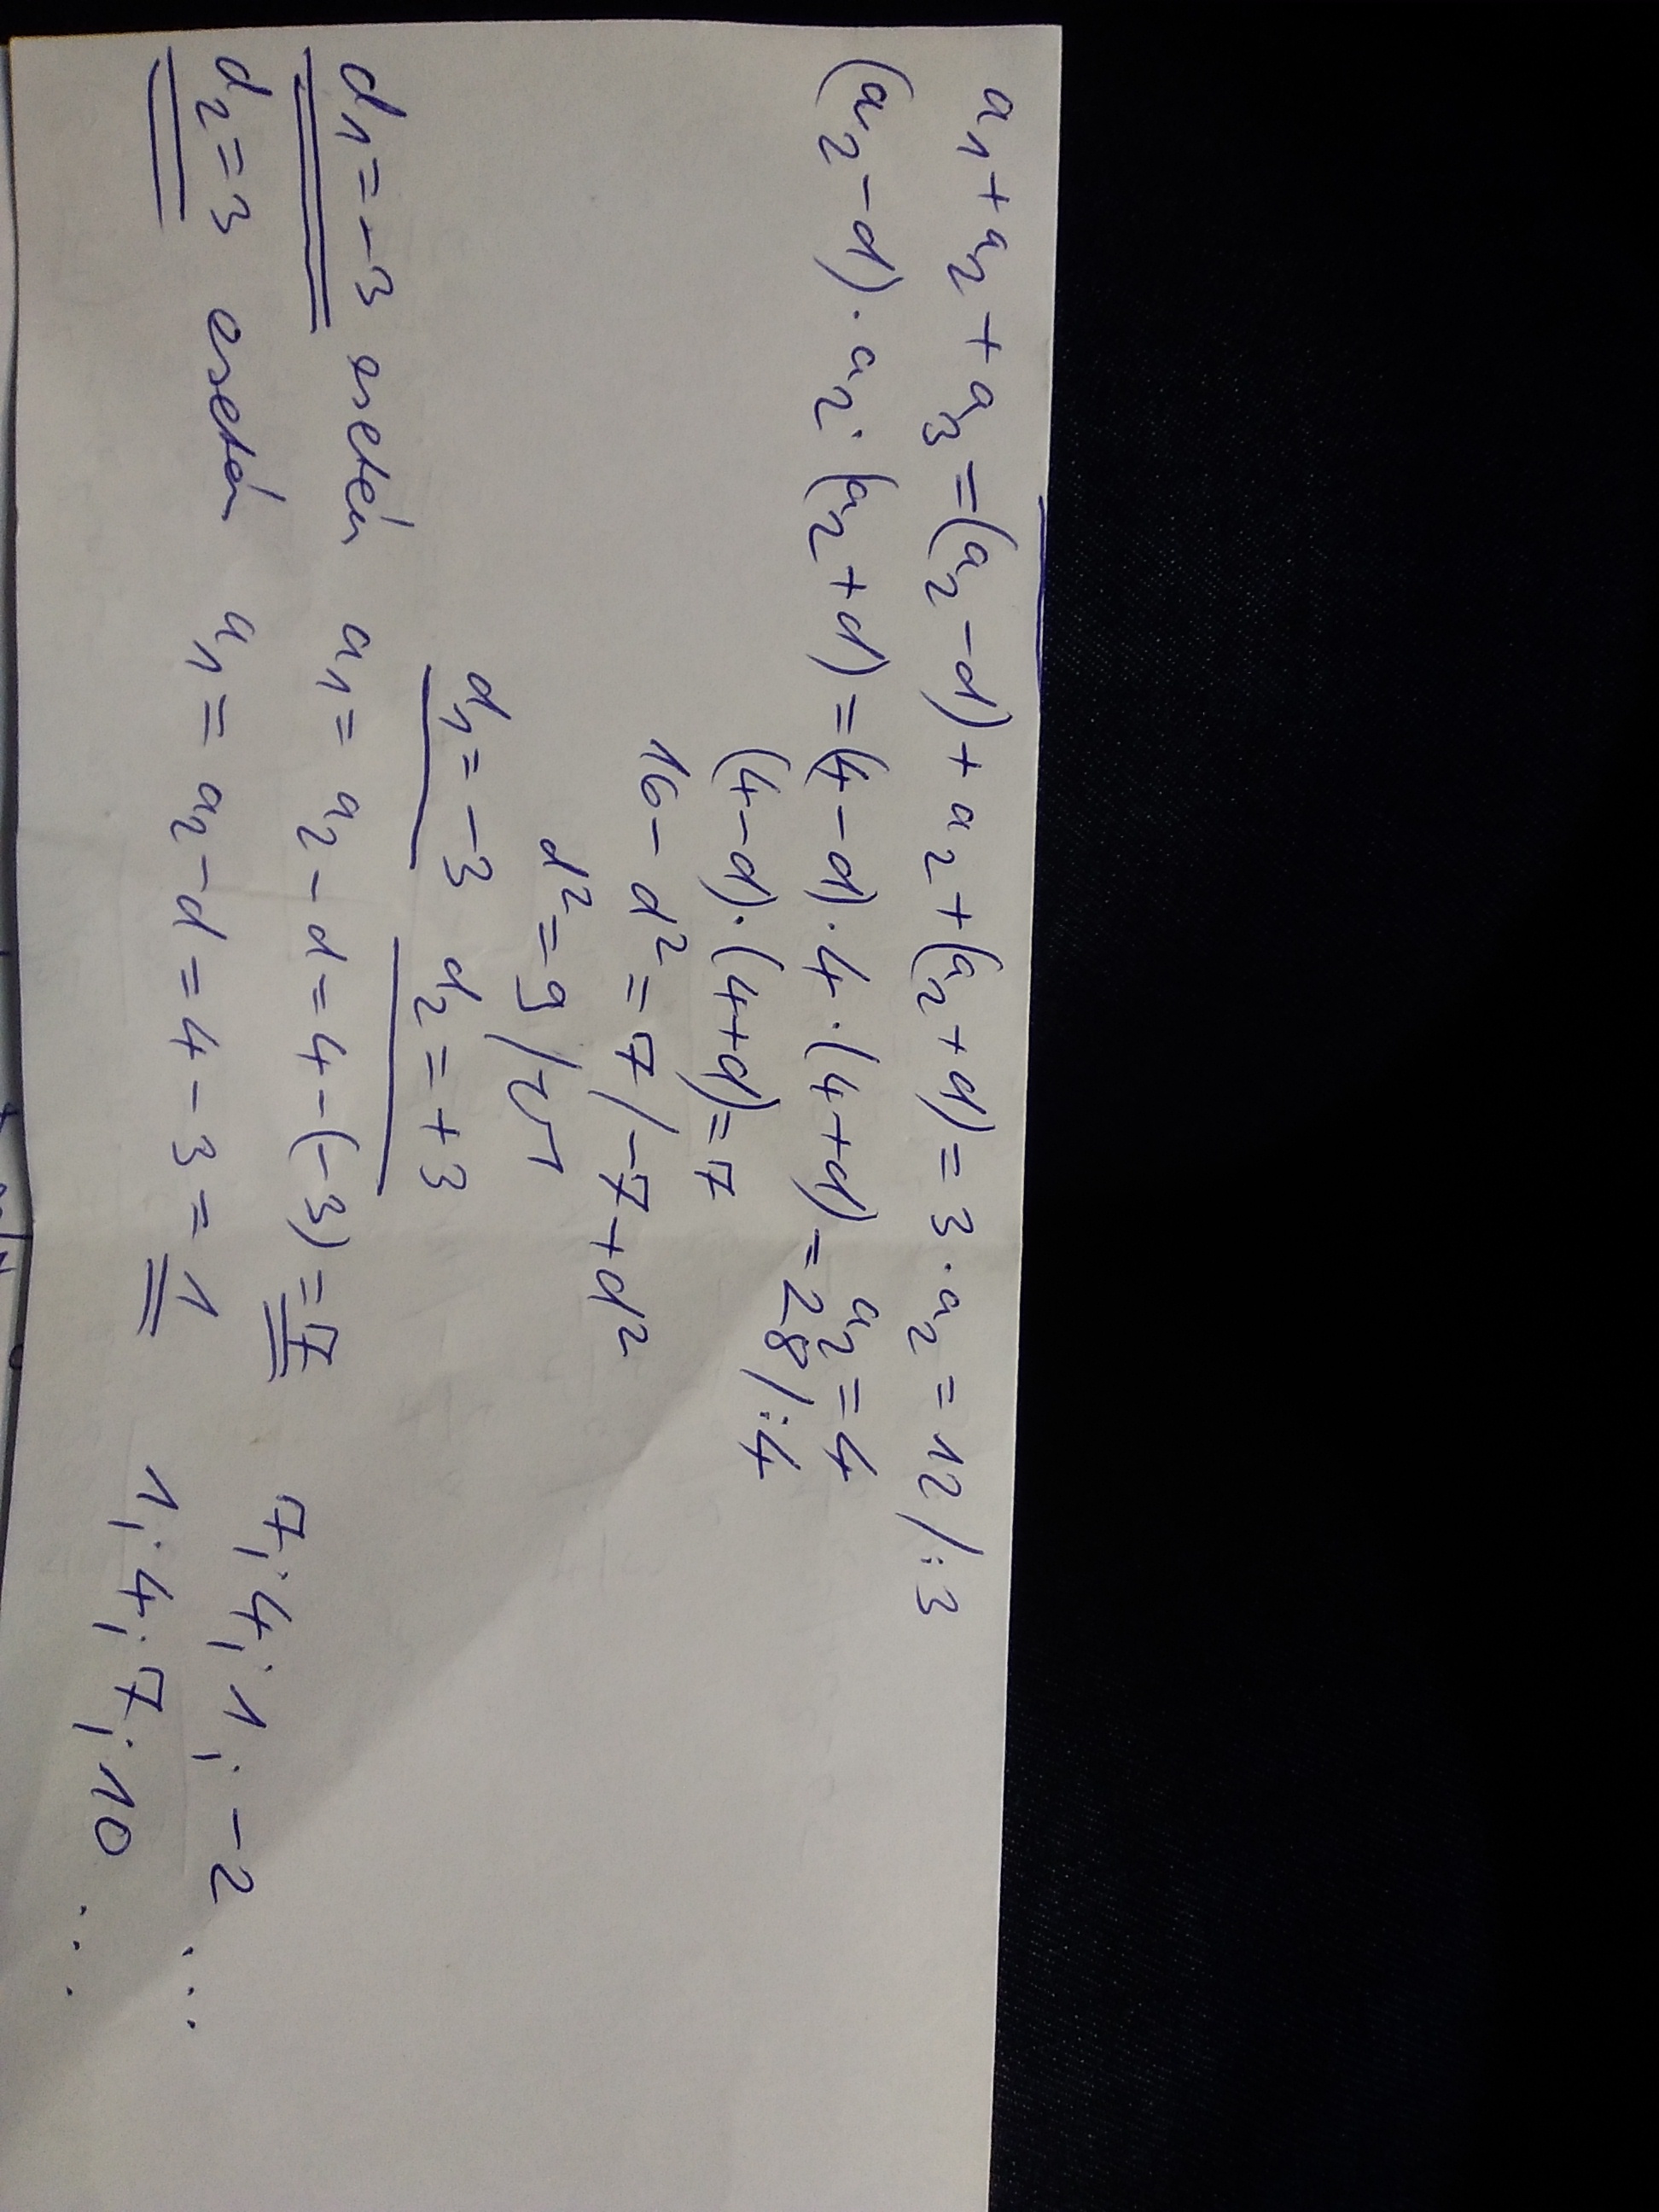 a₁+a₂+a₃=(a₂-d)+a₂+(a₂+d)=3·a₂=12/:3
a₂=4
(a₂-d)·a₂·(a₂+d)=(4-d)·4·(4+d)=28/:4
(4-d)·(4+d)=7
16-d²=7/-7+d²
d²=9/√
d₁=-3 d₂=+3
d₁=-3 esetén a₁=a₂-d=4-(-3)=7 7; 4; 1; -2 ...
d₂=3 esetén a₁=a₂-d=4-3=1 1; 4; 7; 10 ...